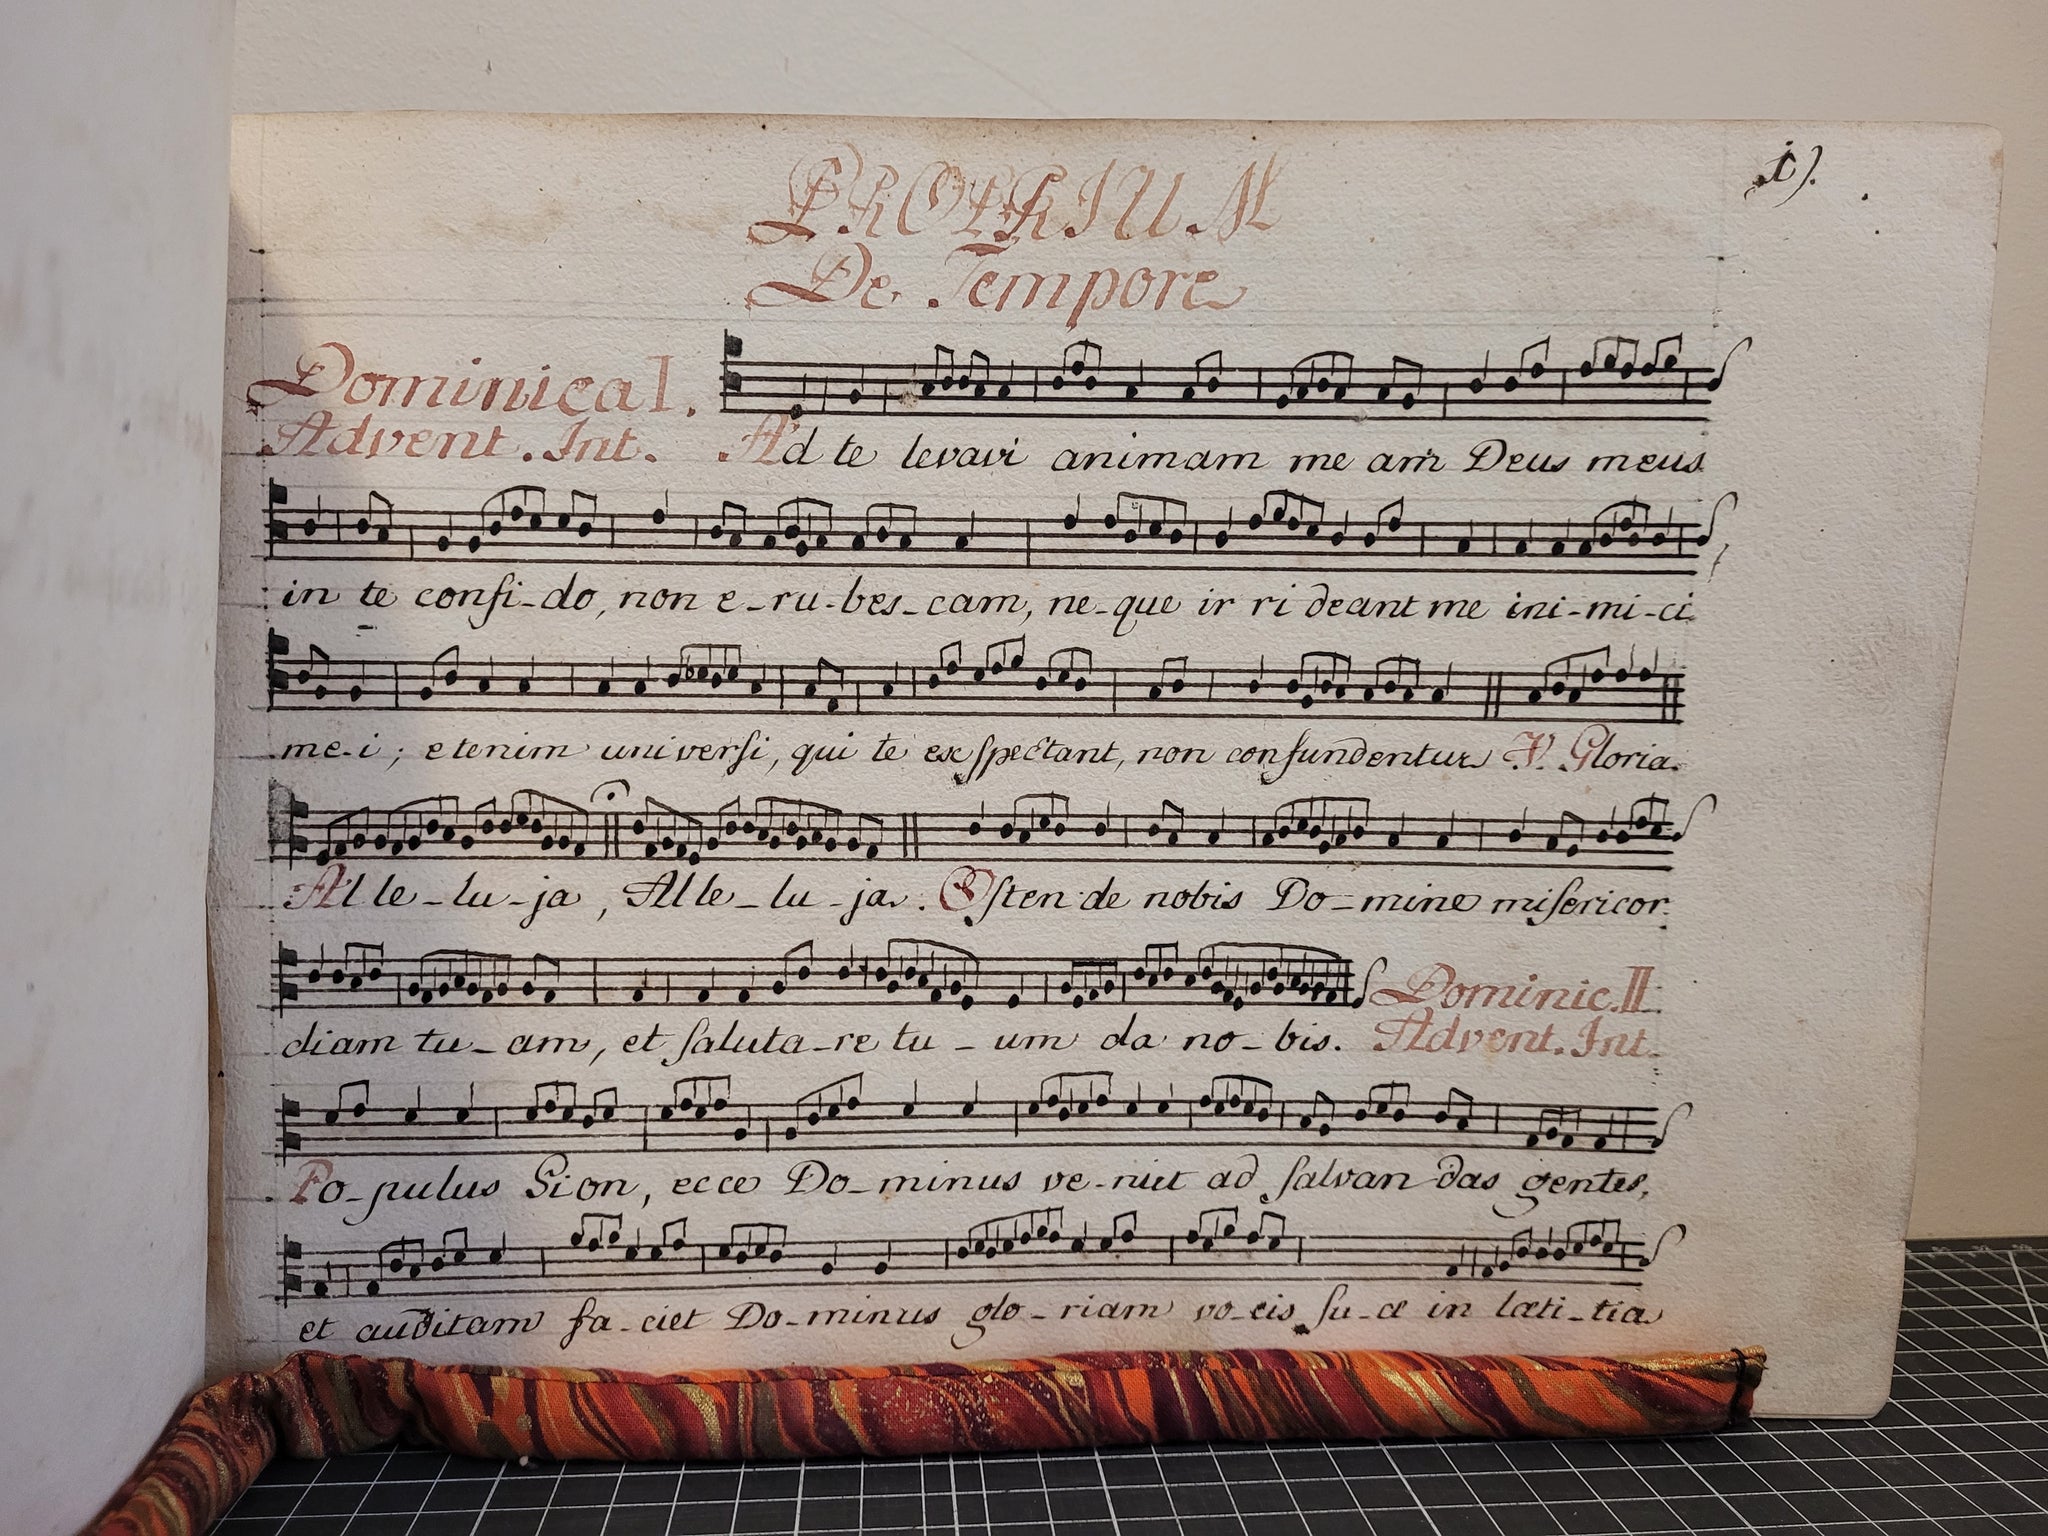 1).
PROPRIUM
De Tempore
Dominica I.
Advent. Int. Ad te levavi animam me am Deus meus
in te confi-do, non e-ru-bes-cam, ne-que ir ri deant me ini-mi-ci
me-i; etenim universi, qui te exſpectant, non confundentur ℣. Gloria.
Al le-lu-ja, Al le-lu-ja. Oſten de nobis Do-mine miſericor
diam tu-am, et ſaluta-re tu-um da no-bis. Dominic. II
Advent. Int.
Po-pulus Sion, ecce Do-minus ve-niet ad ſalvan das gentes,
et auditam fa-ciet Do-minus glo-riam vo-cis ſu-æ in læti-tia